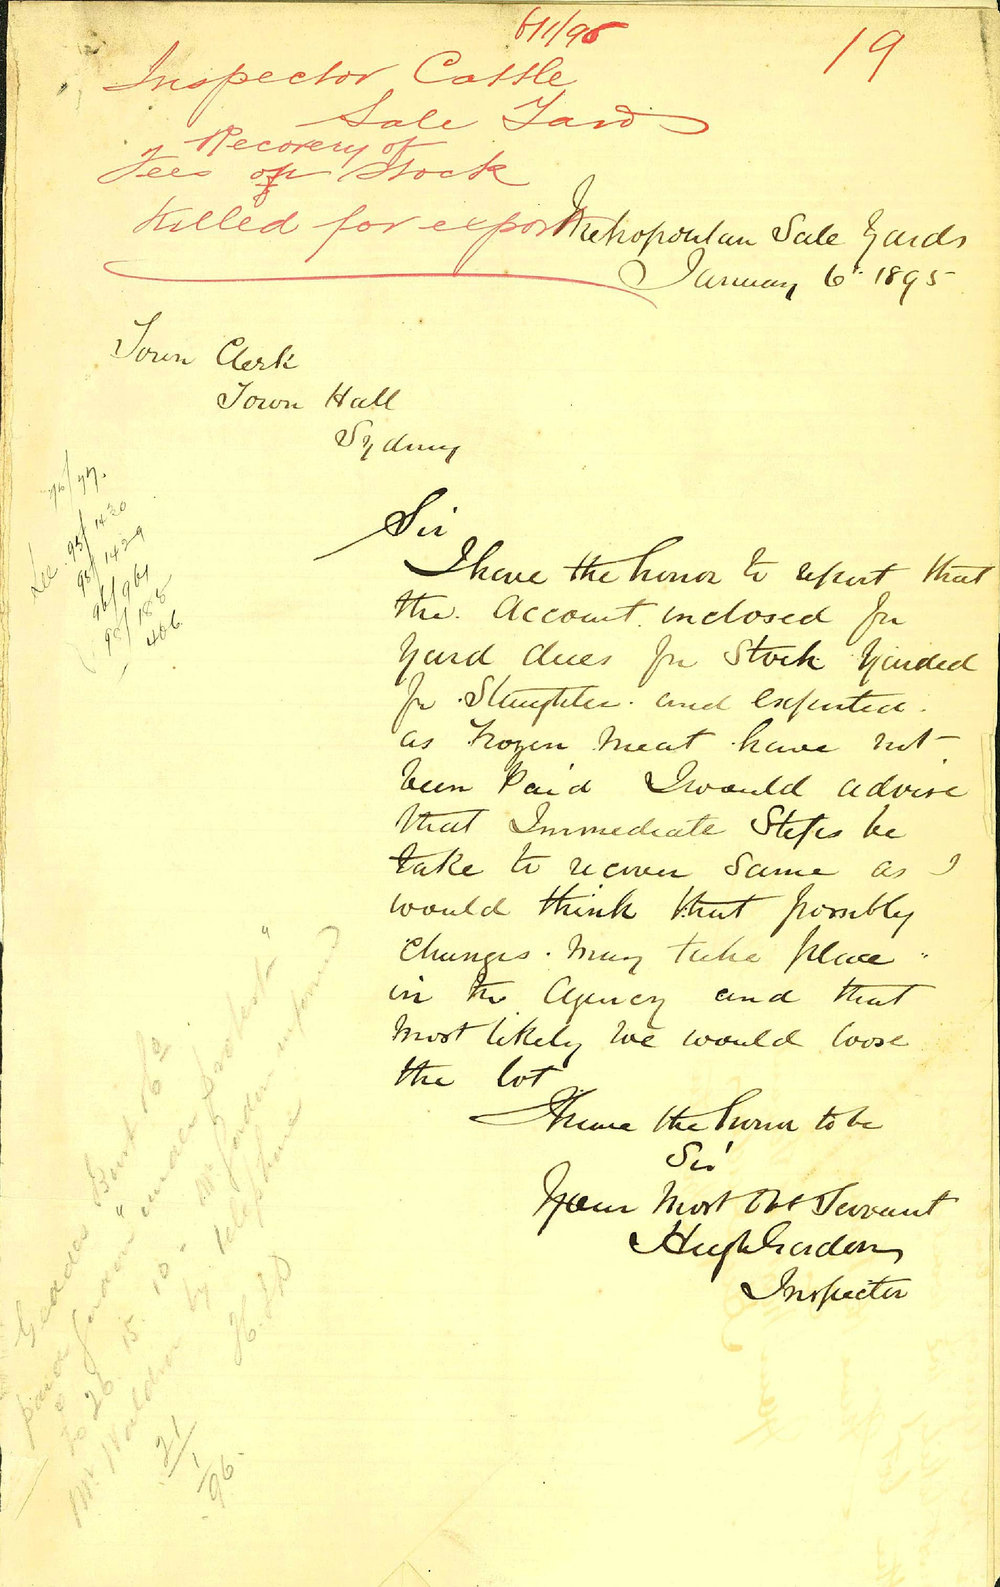 6/1/96
19
Inspector Cattle
Sale Yard
Recovery of
Fees on Stock
Killed for export
Metropolitan Sale Yards
January 6th 1895
Town Clerk
Town Hall
Sydney
96/97.
See 95/1420
95/1429
96/964
95/188
406
Sir
I have the honor to report that
the Account inclosed for
Yard dues for Stock Yarded
for Slaughter and Exported
as Frozen Meat have not
been Paid I would advise
that Immediate Steps be
take to recover Same as I
would think that possibly
Changes May take place
in the Agency and that
Most likely we would loose
the lot
I have the honor to be
Sir
Your Most Obt Servant
Hugh Gordon
Inspector
Geddes Birt & Co
paid Jordan "under protest"
26. 15. 10
by telephone
21/1/96